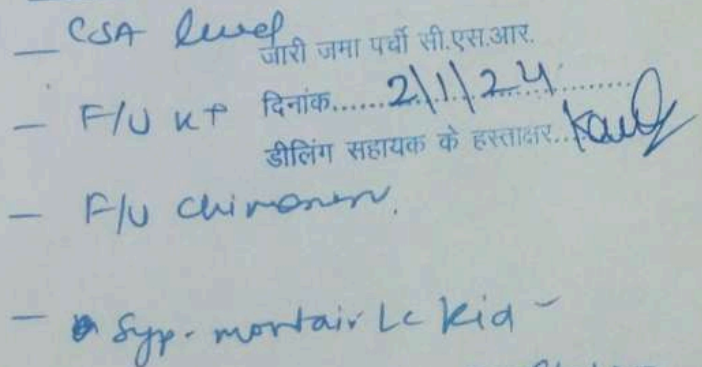 — CSA level
जारी जमा पर्ची सी.एस.आर.
— F/U KT
दिनांक......2/1/24............
डीलिंग सहायक के हस्ताक्षर..
— F/U Chimerism.
— Syp. montair Lc Kid -